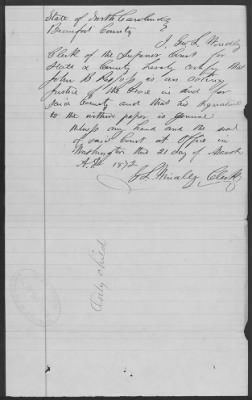 State of North Carolina
Beaufort County
I, Geo L Windley
Clerk of the Superior Court for
State & County hereby certify that
John B Respess is an acting
Justice of the Peace in and for
said County and that his signature
to the within paper is genuine
Witness my hand and the seal
of said Court at Office in
Washington this 21 day of March
A.D. 1872
G L Windley Clerk
Only child